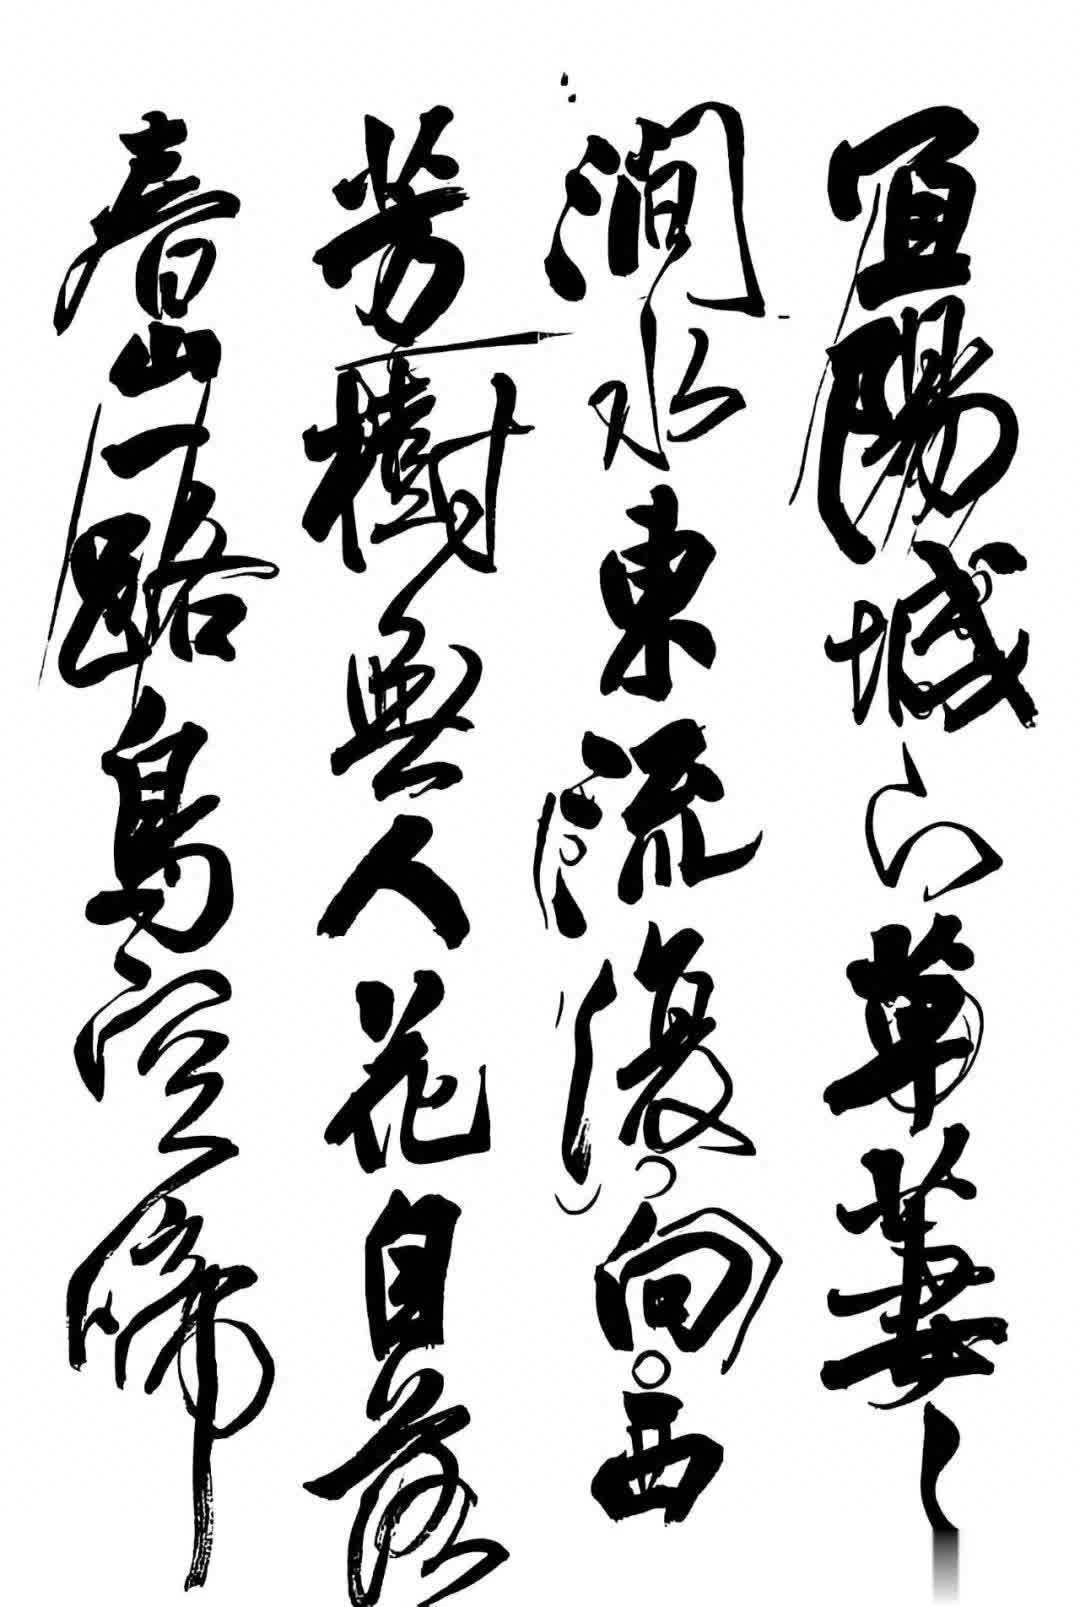 宜陽城下草萋々
澗水東流復向西
芳樹無人花自落
春山一路鳥空啼